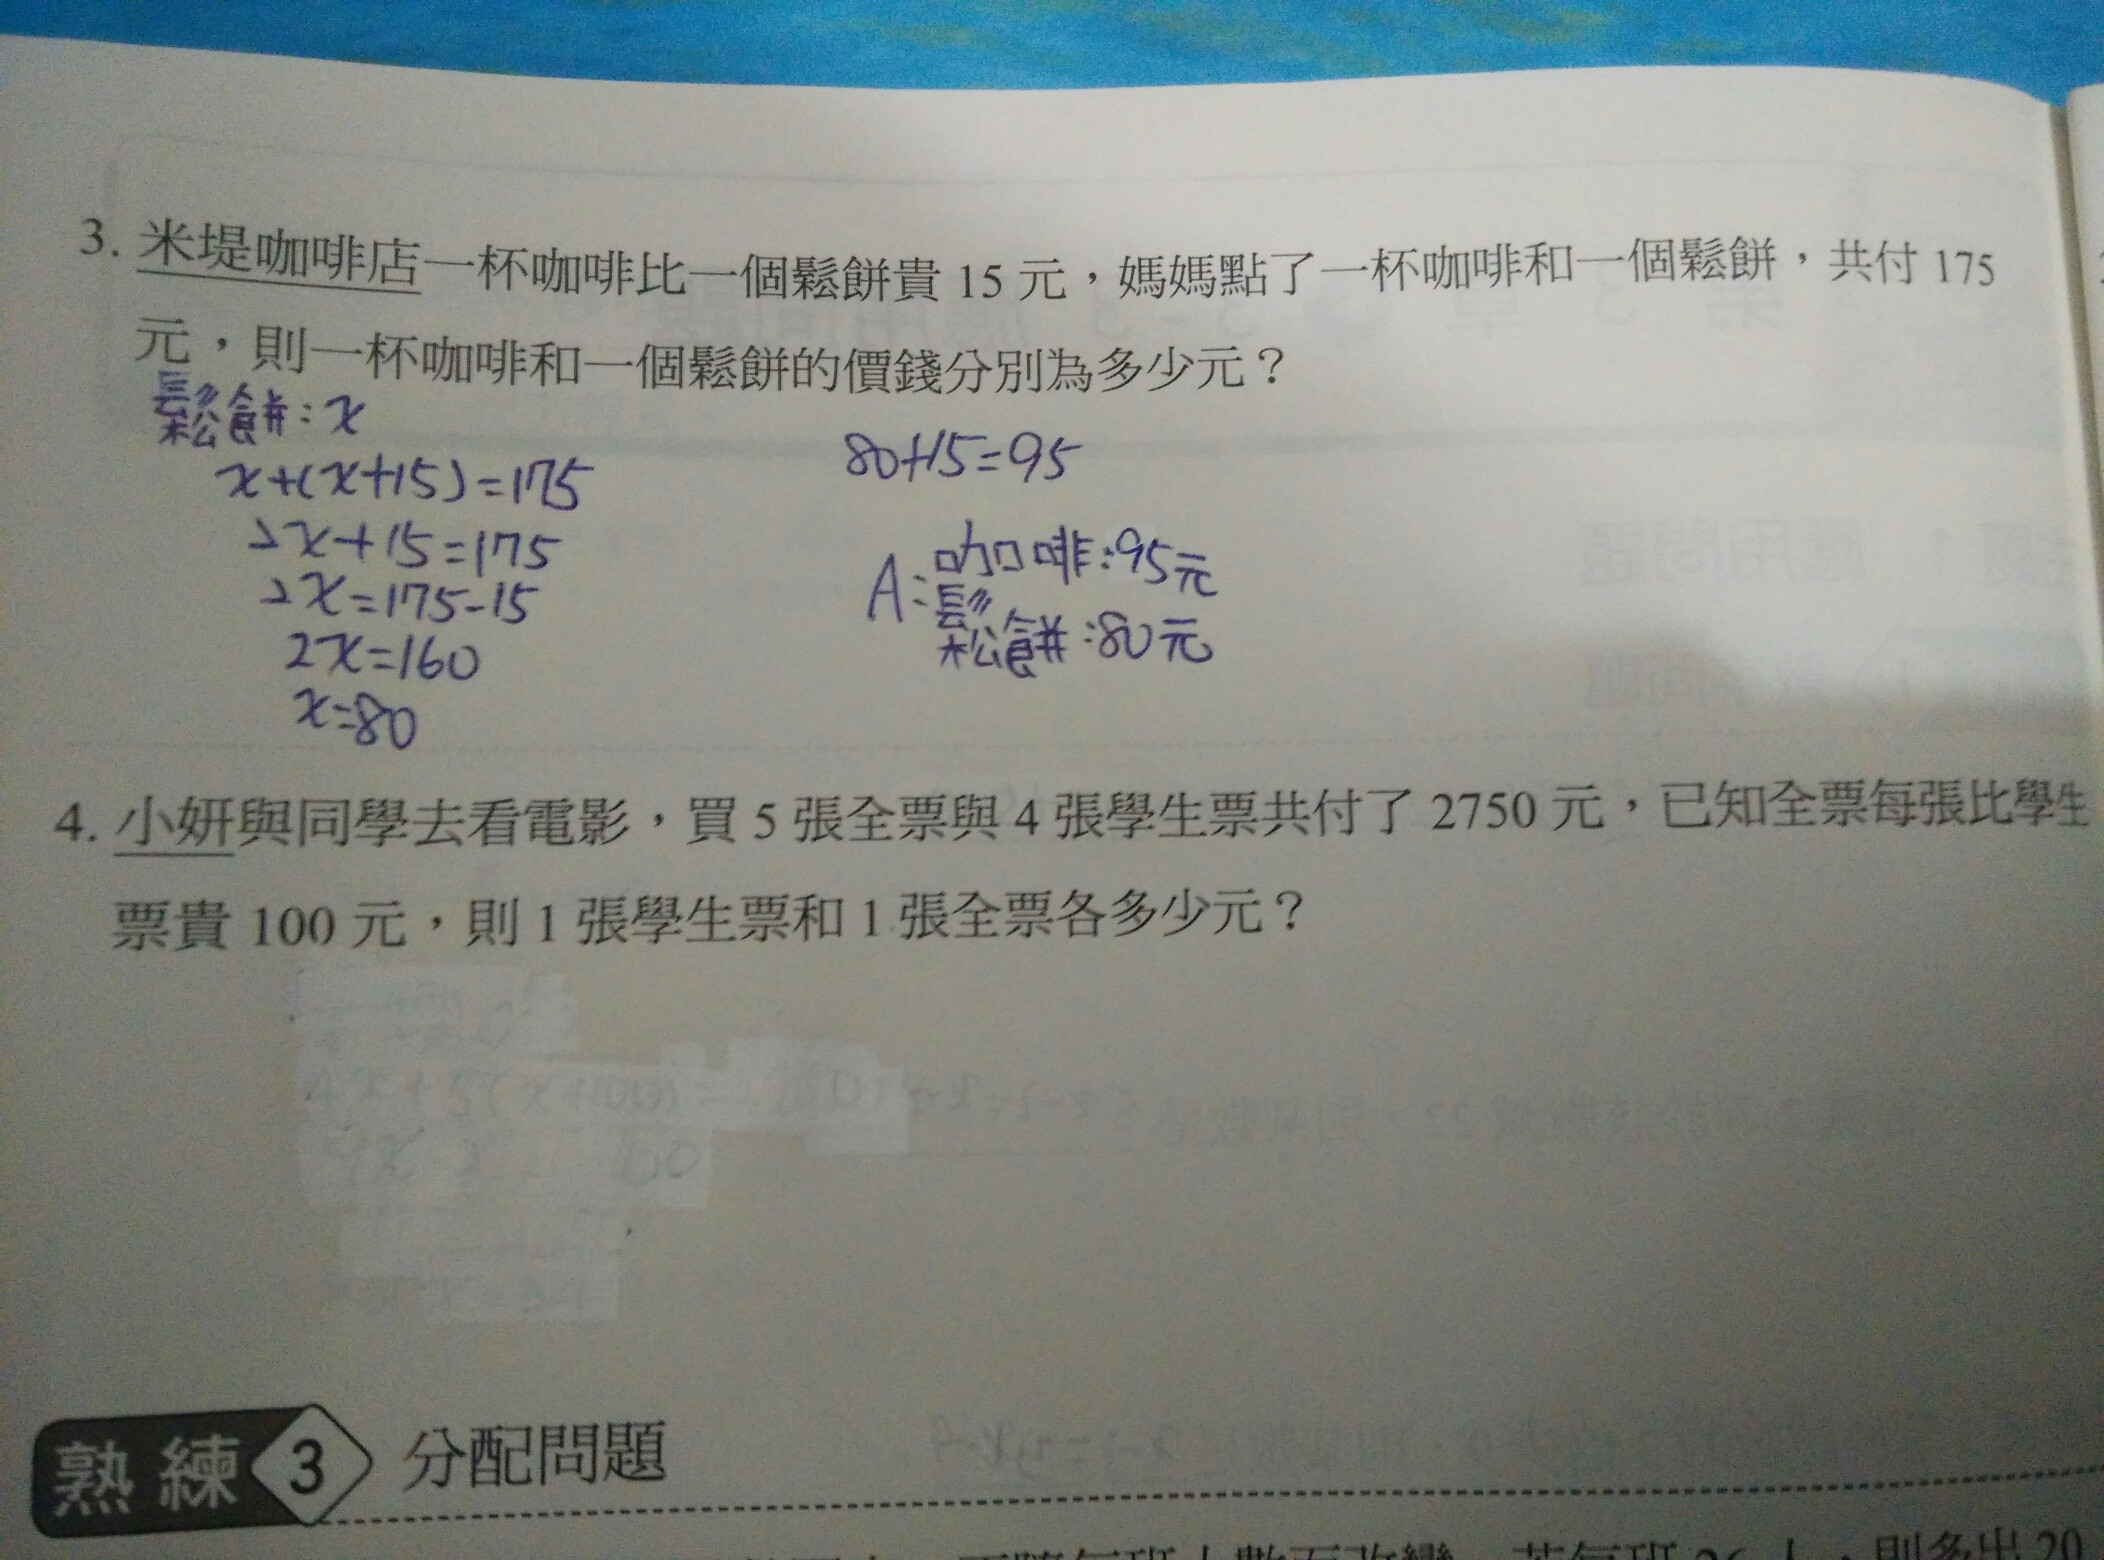 3. 米堤咖啡店一杯咖啡比一個鬆餅貴 15 元，媽媽點了一杯咖啡和一個鬆餅，共付 175
元，則一杯咖啡和一個鬆餅的價錢分別為多少元？
鬆餅：x
x+(x+15)=175
2x+15=175
2x=175-15
2x=160
x=80
80+15=95
A：咖啡：95元
鬆餅：80元
4. 小妍與同學去看電影，買 5 張全票與 4 張學生票共付了 2750 元，已知全票每張比學生
票貴 100 元，則 1 張學生票和 1 張全票各多少元？
4x+5(x+100)=
熟練 3 分配問題